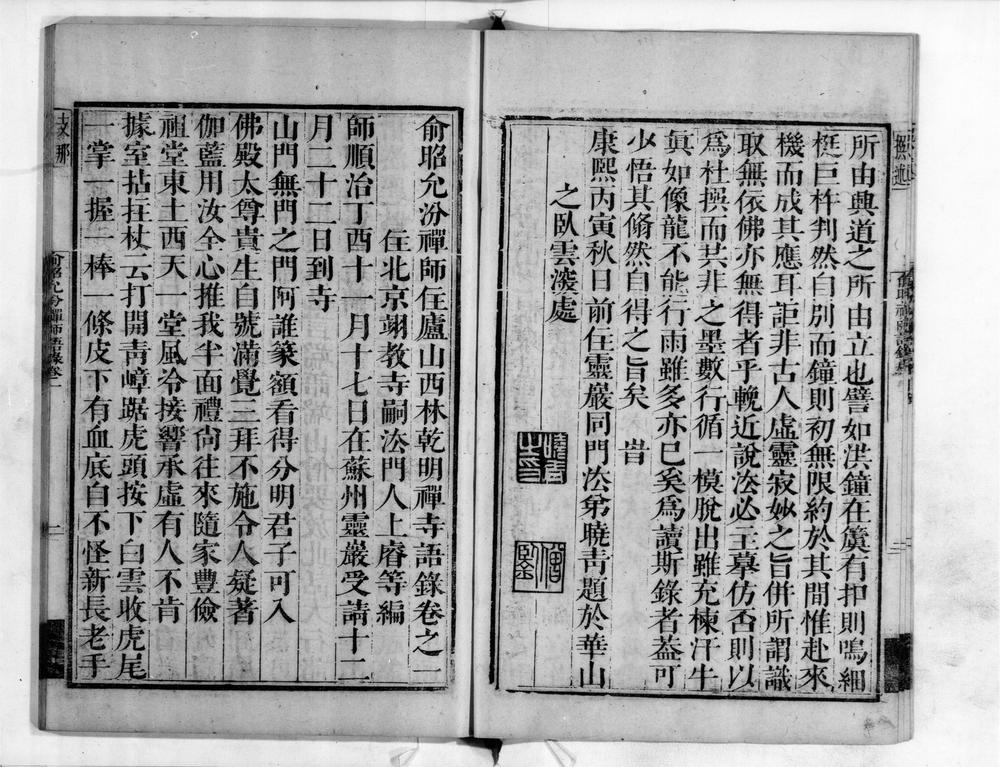 所由興道之所由立也譬如洪鐘在簴有扣則鳴細
梃巨杵判然自別而鐘則初無限約於其間惟赴來
機而成其應耳詎非古人虛靈寂妙之旨併所謂識
取無依佛亦無得者乎輓近說法必主摹仿否則以
為杜撰而共非之墨數行循一模脫出雖充棟汗牛
眞如像龍不能行雨雖多亦巳奚為讀斯錄者葢可
少悟其翛然自得之旨矣　旹
康熙丙寅秋日前住靈巖同門法弟曉青題於華山
之臥雲深處
俞昭允汾禪師住廬山西林乾明禪寺語錄卷之一
住北京翊教寺嗣法門人上睿等編
師順治丁酉十一月十七日在蘇州靈巖受請十二
月二十二日到寺
山門無門之門阿誰篆額看得分明君子可入
佛殿太尊貴生自號滿覺三拜不施令人疑著
伽藍用汝全心推我半面禮尙往來隨家豐儉
祖堂東土西天一堂風冷接響承虛有人不肯
據室拈拄杖云打開青嶂踞虎頭按下白雲收虎尾
一掌一握一棒一條皮下有血底自不怪新長老手
支那
俞昭允汾禪師語錄卷一